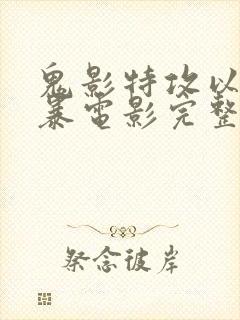 鬼影特攻以
暴電影完整
祭念彼岸